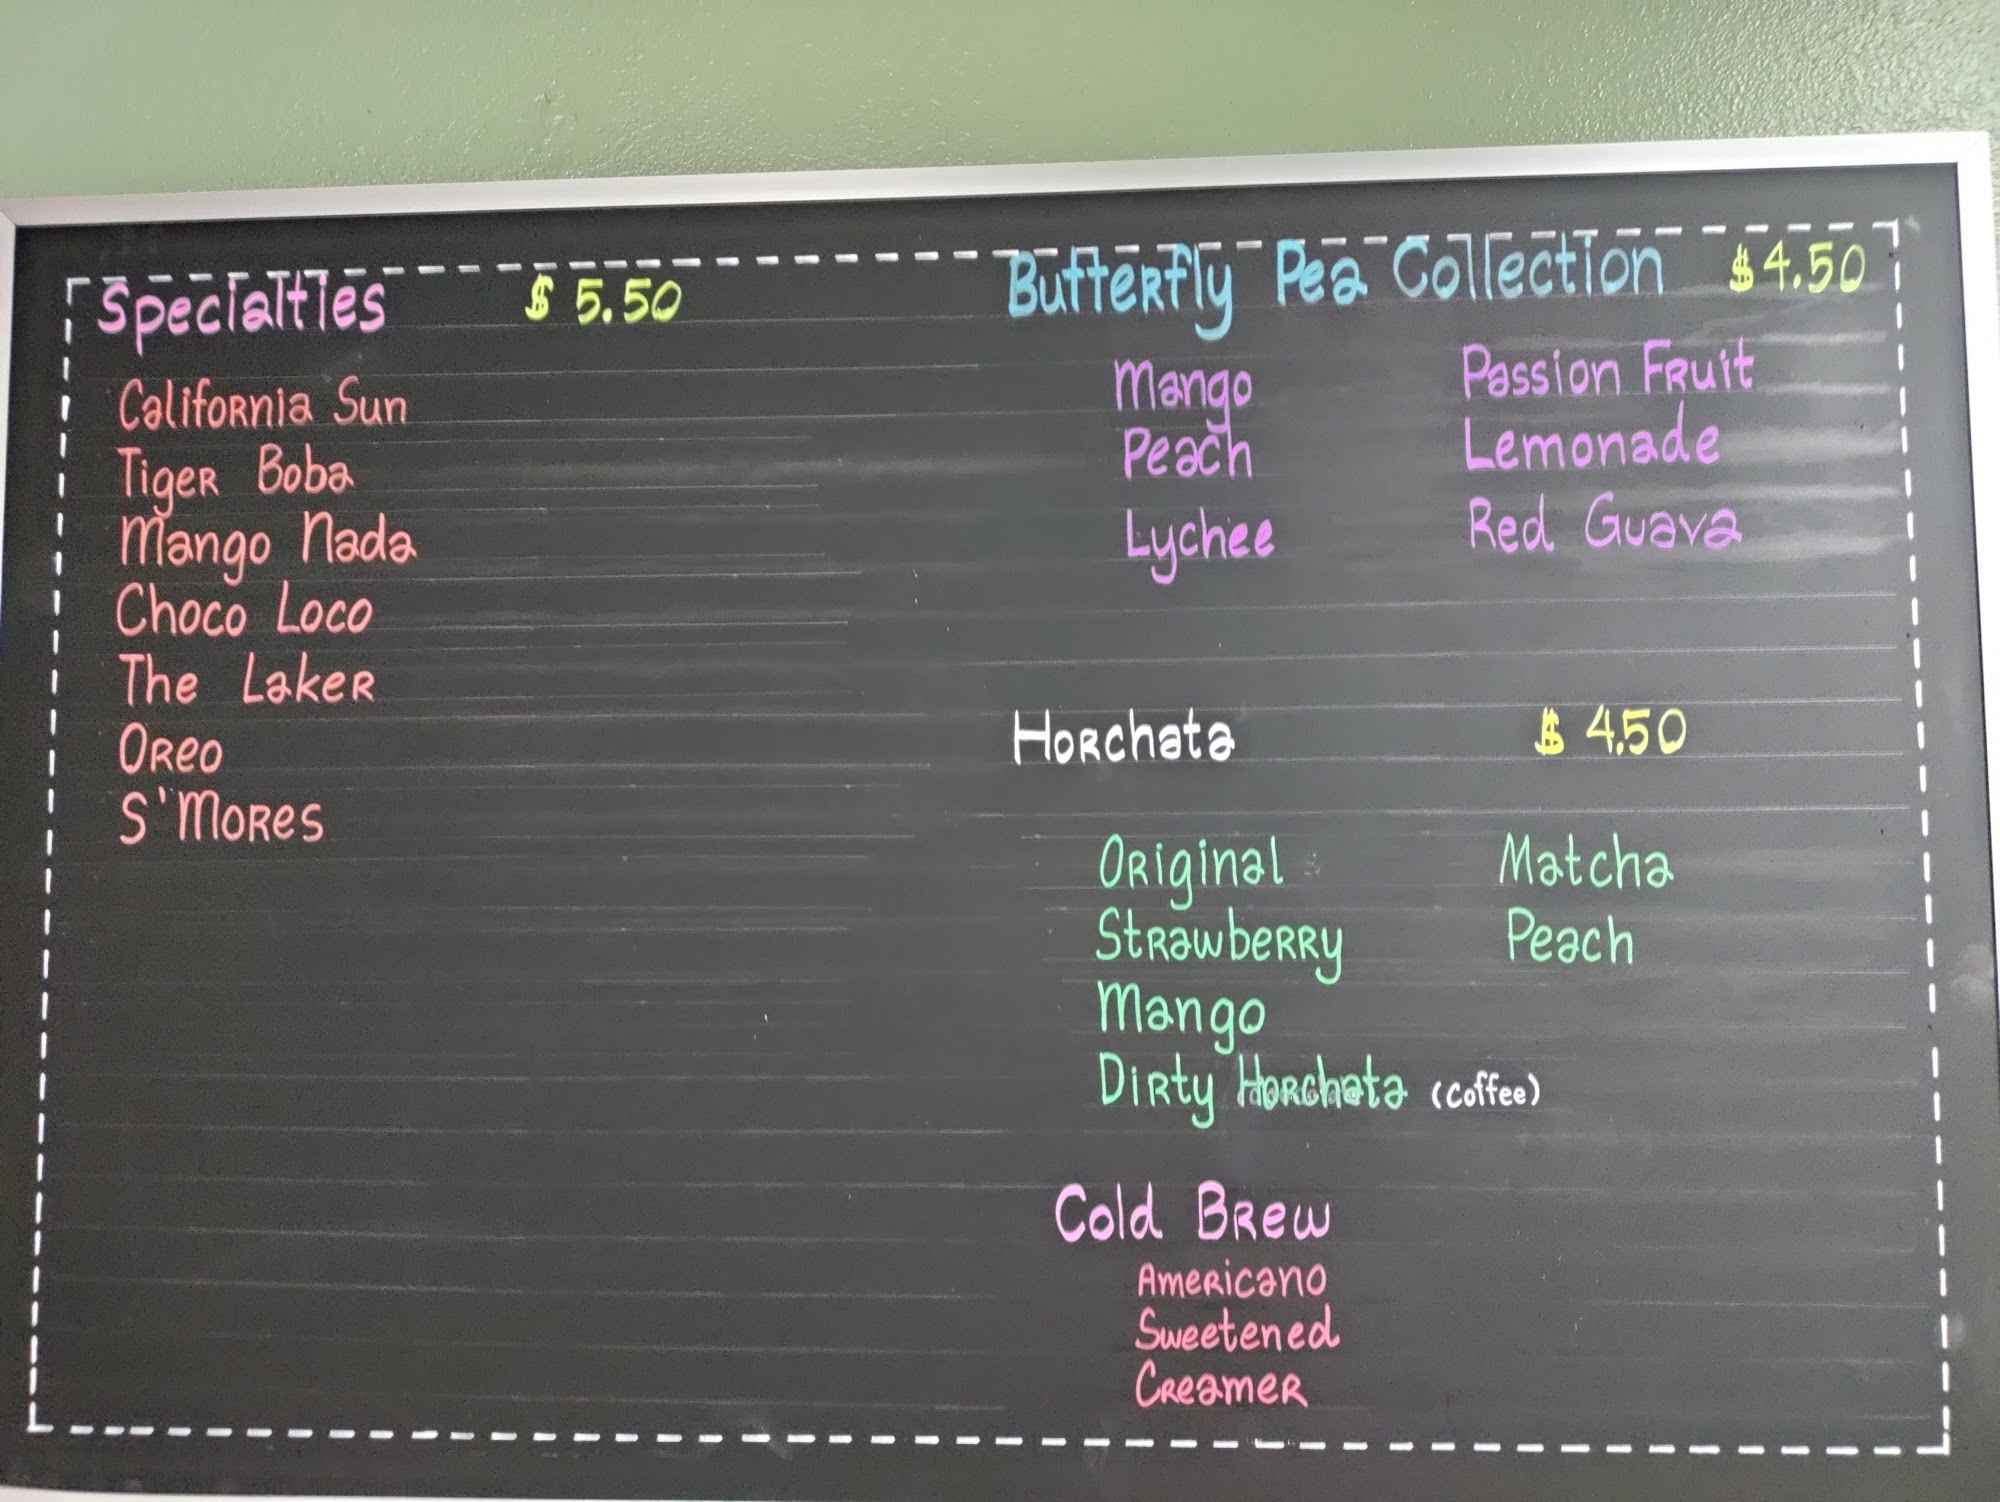 Specialties $ 5.50
California Sun
Tiger Boba
Mango Nada
Choco Loco
The Laker
Oreo
S'Mores
Butterfly Pea Collection $4.50
Mango Passion Fruit
Peach Lemonade
Lychee Red Guava
Horchata $ 4.50
Original Matcha
Strawberry Peach
Mango
Dirty Horchata (Coffee)
Cold Brew
Americano
Sweetened
Creamer